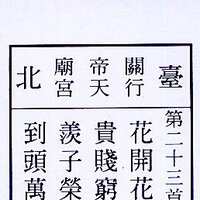 臺北
關帝廟
行天宮
第二十三首
花開花
貴賤窮
羨子榮
到頭萬